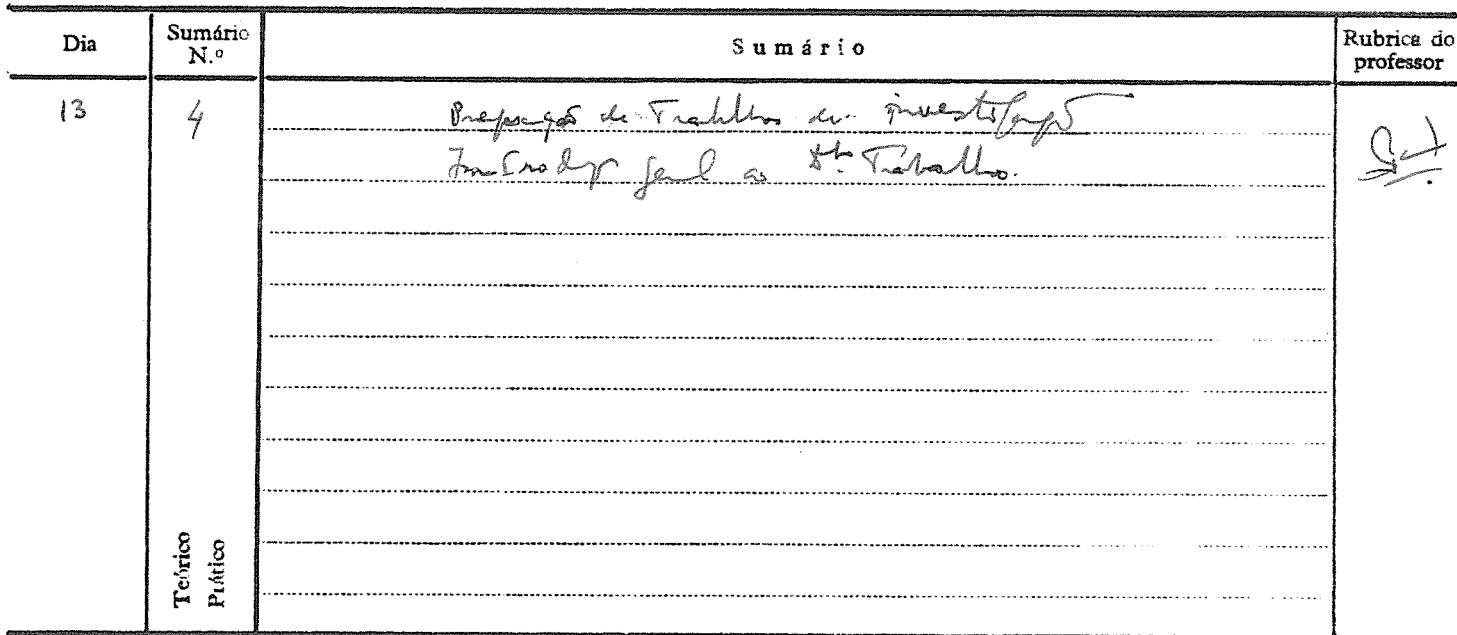 Dia
Sumário N.º
Sumário
Rubrica do professor
13
4
Preparação de Trabalhos de investigação
Introdução geral ao Dto. Trabalho.
Teórico
Prático